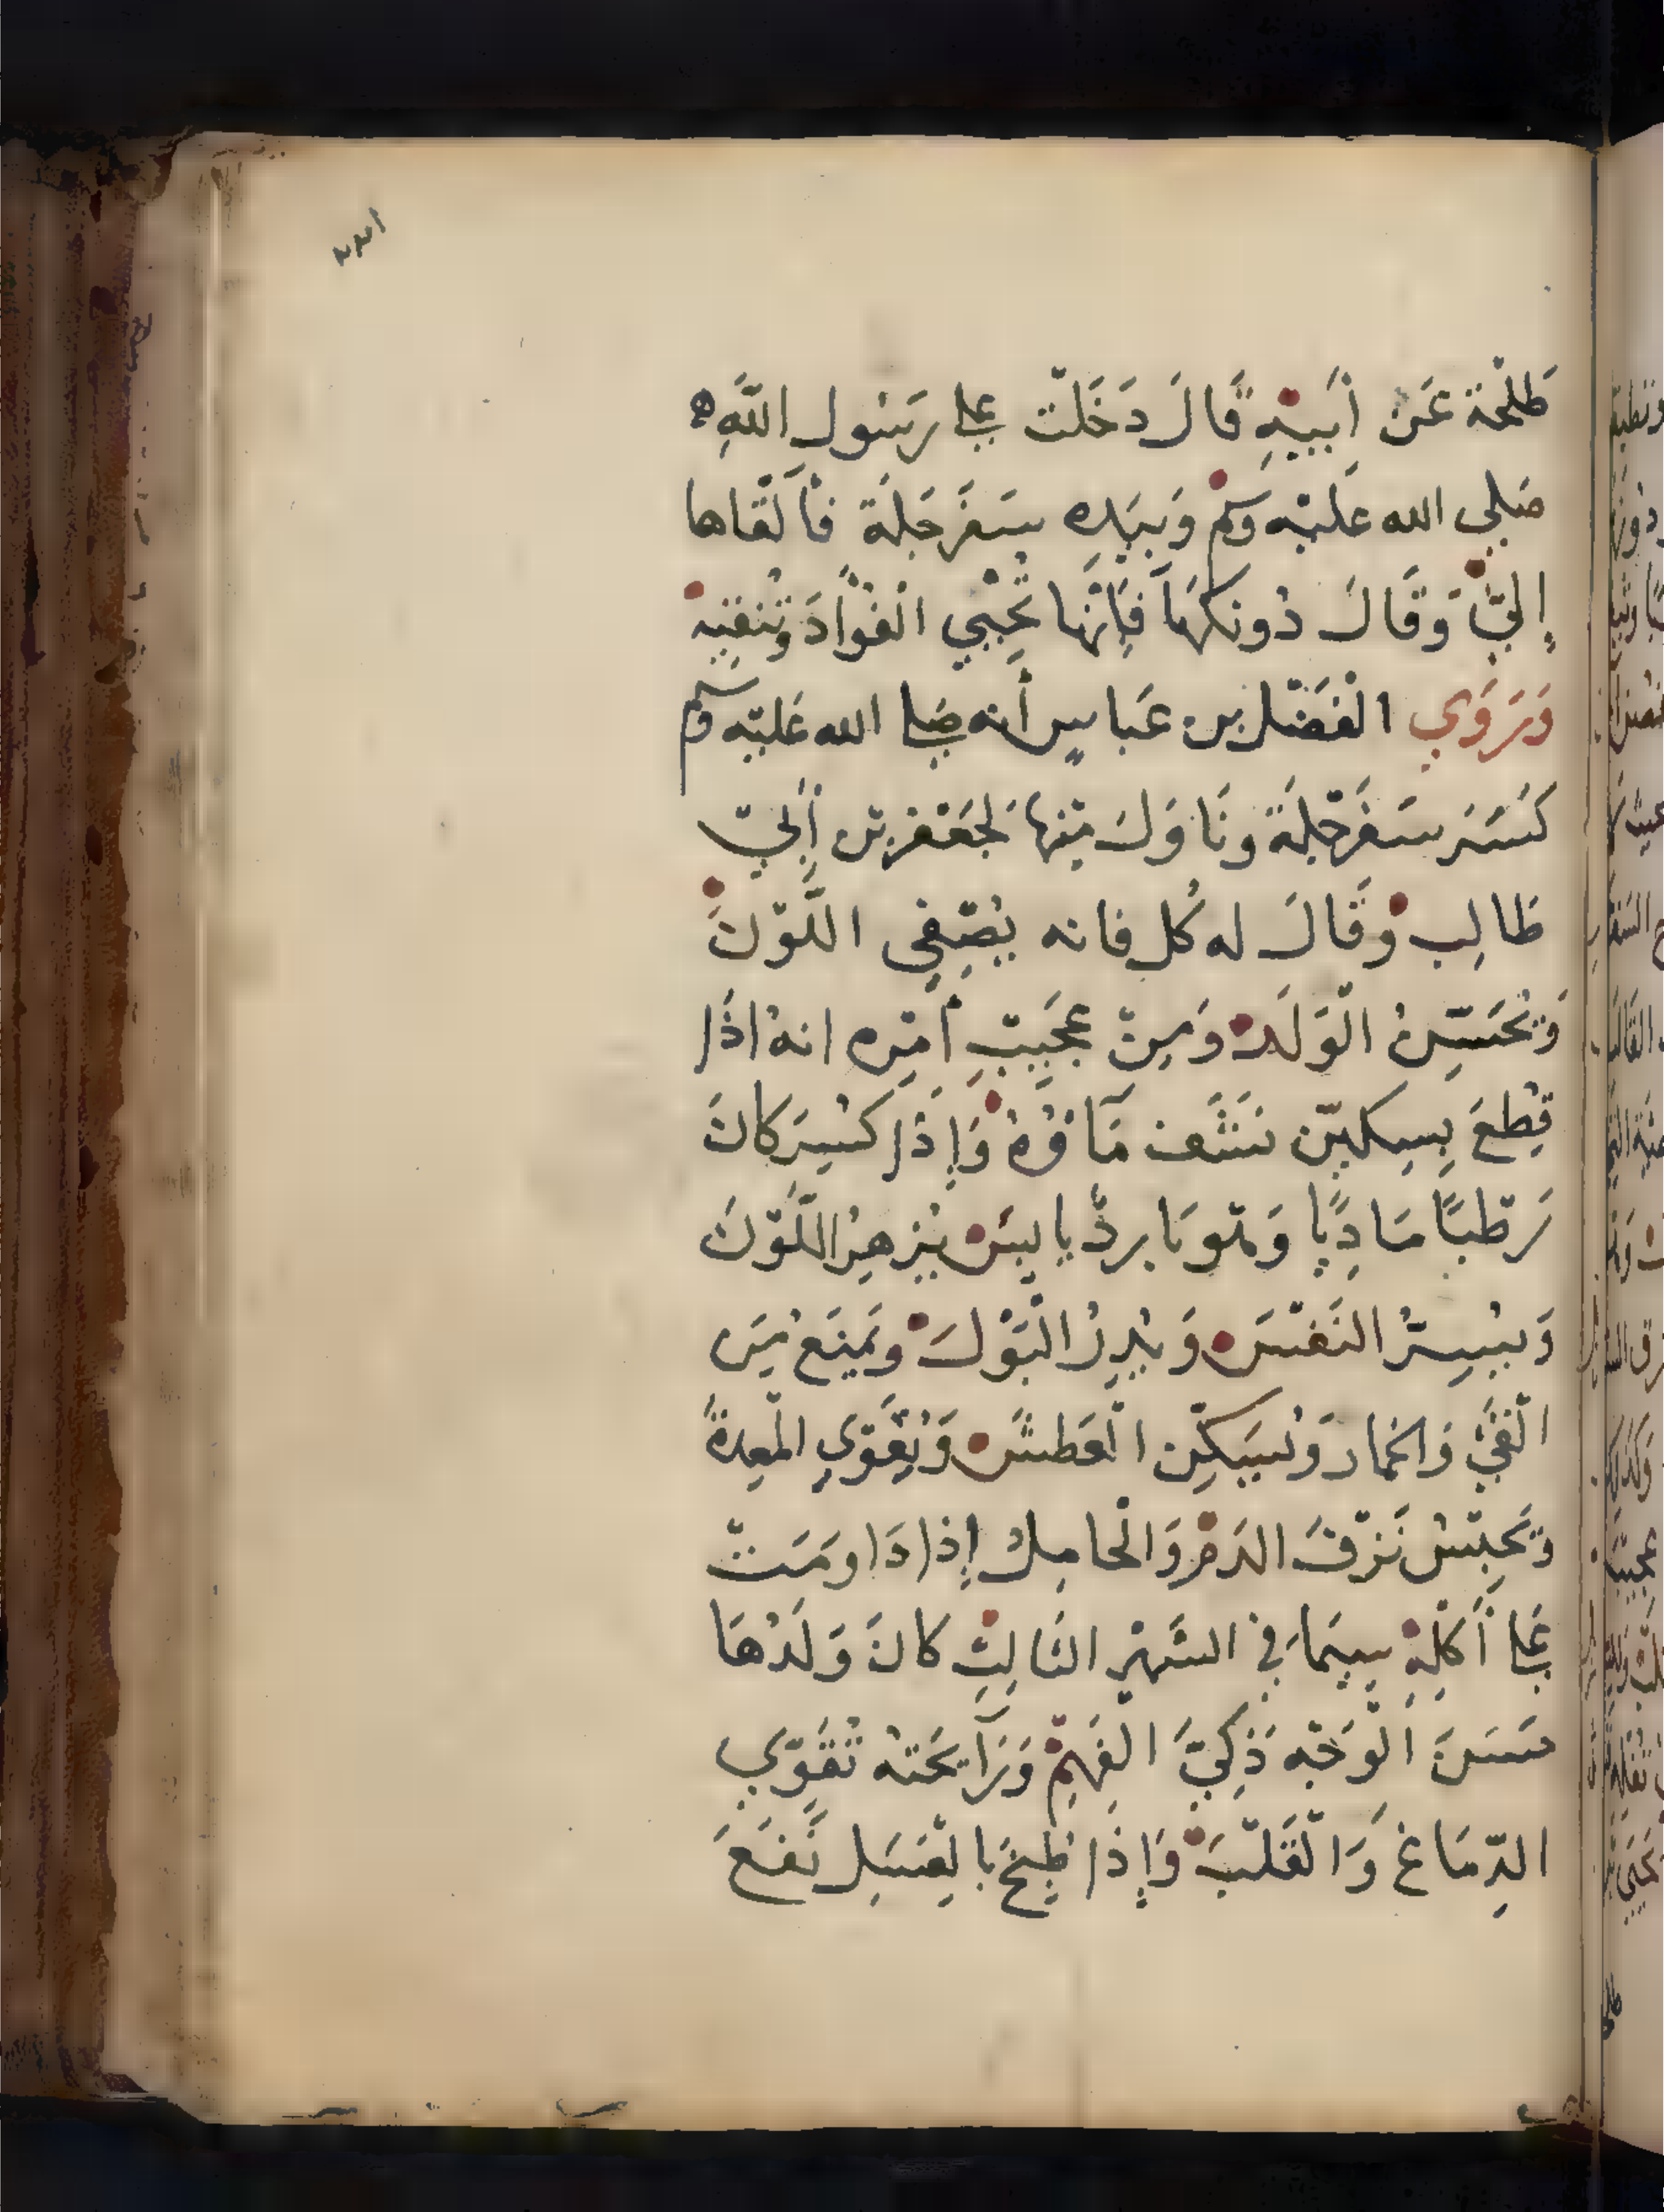 طَلْحَة عَن أَبِيْهِ قَالَ دَخَلْت على رَسُول اللَّهِ
صَلي الله عَليْه وسلم وَبِيَدِه سَفَرْجَلَة فَأَلْقَاها
إِليَّ وَقَالَ دُونكهَا فَإِنَّهَا تُحْيِي الْفُؤَادَ وَتُنَقِّيْهْ
وَرَوَي الْفَضْل بن عَباسٍ أنه صَلى الله عَليْه وسلم
كَسَرَ سَفَرْجَلَةً ونَاوَلَ مِنْهَا لِجَعْفَر بْن أَبِيْ
طَالِب وَقَالَ له كُل فانه يُصَفِّي اللَّوْنَ
وَيُحَسِّنُ الْوَلَد وَمِنْ عَجِيْبِ أَمْرِه انهُ اذَا
قُطِعَ بِسِكيْن نَشَّفَ مَاؤُهُ وَإِذَا كُسِرَ كانَ
رَطْبًا مَادِيًا وَهْوَ بَارِدٌ يابِسٌ يُزْهِرُ اللَّوْنَ
وَيَسُرُّ النَفْسَ وَيُدِرُ الْبَوْلَ وَيَمْنَع مِنَ
الْقَيَّ وَالخمار وَيُسَكِّن الْعَطَش وَيُقَوِّي المعِدةَ
وَيَحْبِسُ نَزْفَ الدَمْ وَالْحامِلُ إِذا دَاوَمَتْ
عَلى أَكْلِهِ سِيَّمَا في الشَهْرِ الثَالِثِ كانَ وَلَدُهَا
حَسَنَ الْوَجْه ذَكِيَّ الْفَهْمِ وَرَآيحَتهُ تُقَوِّي
الدِّمَاغ وَالْقَلْبَ وَإِذَا طُبِخَ بالعَسَل نَفَعَ